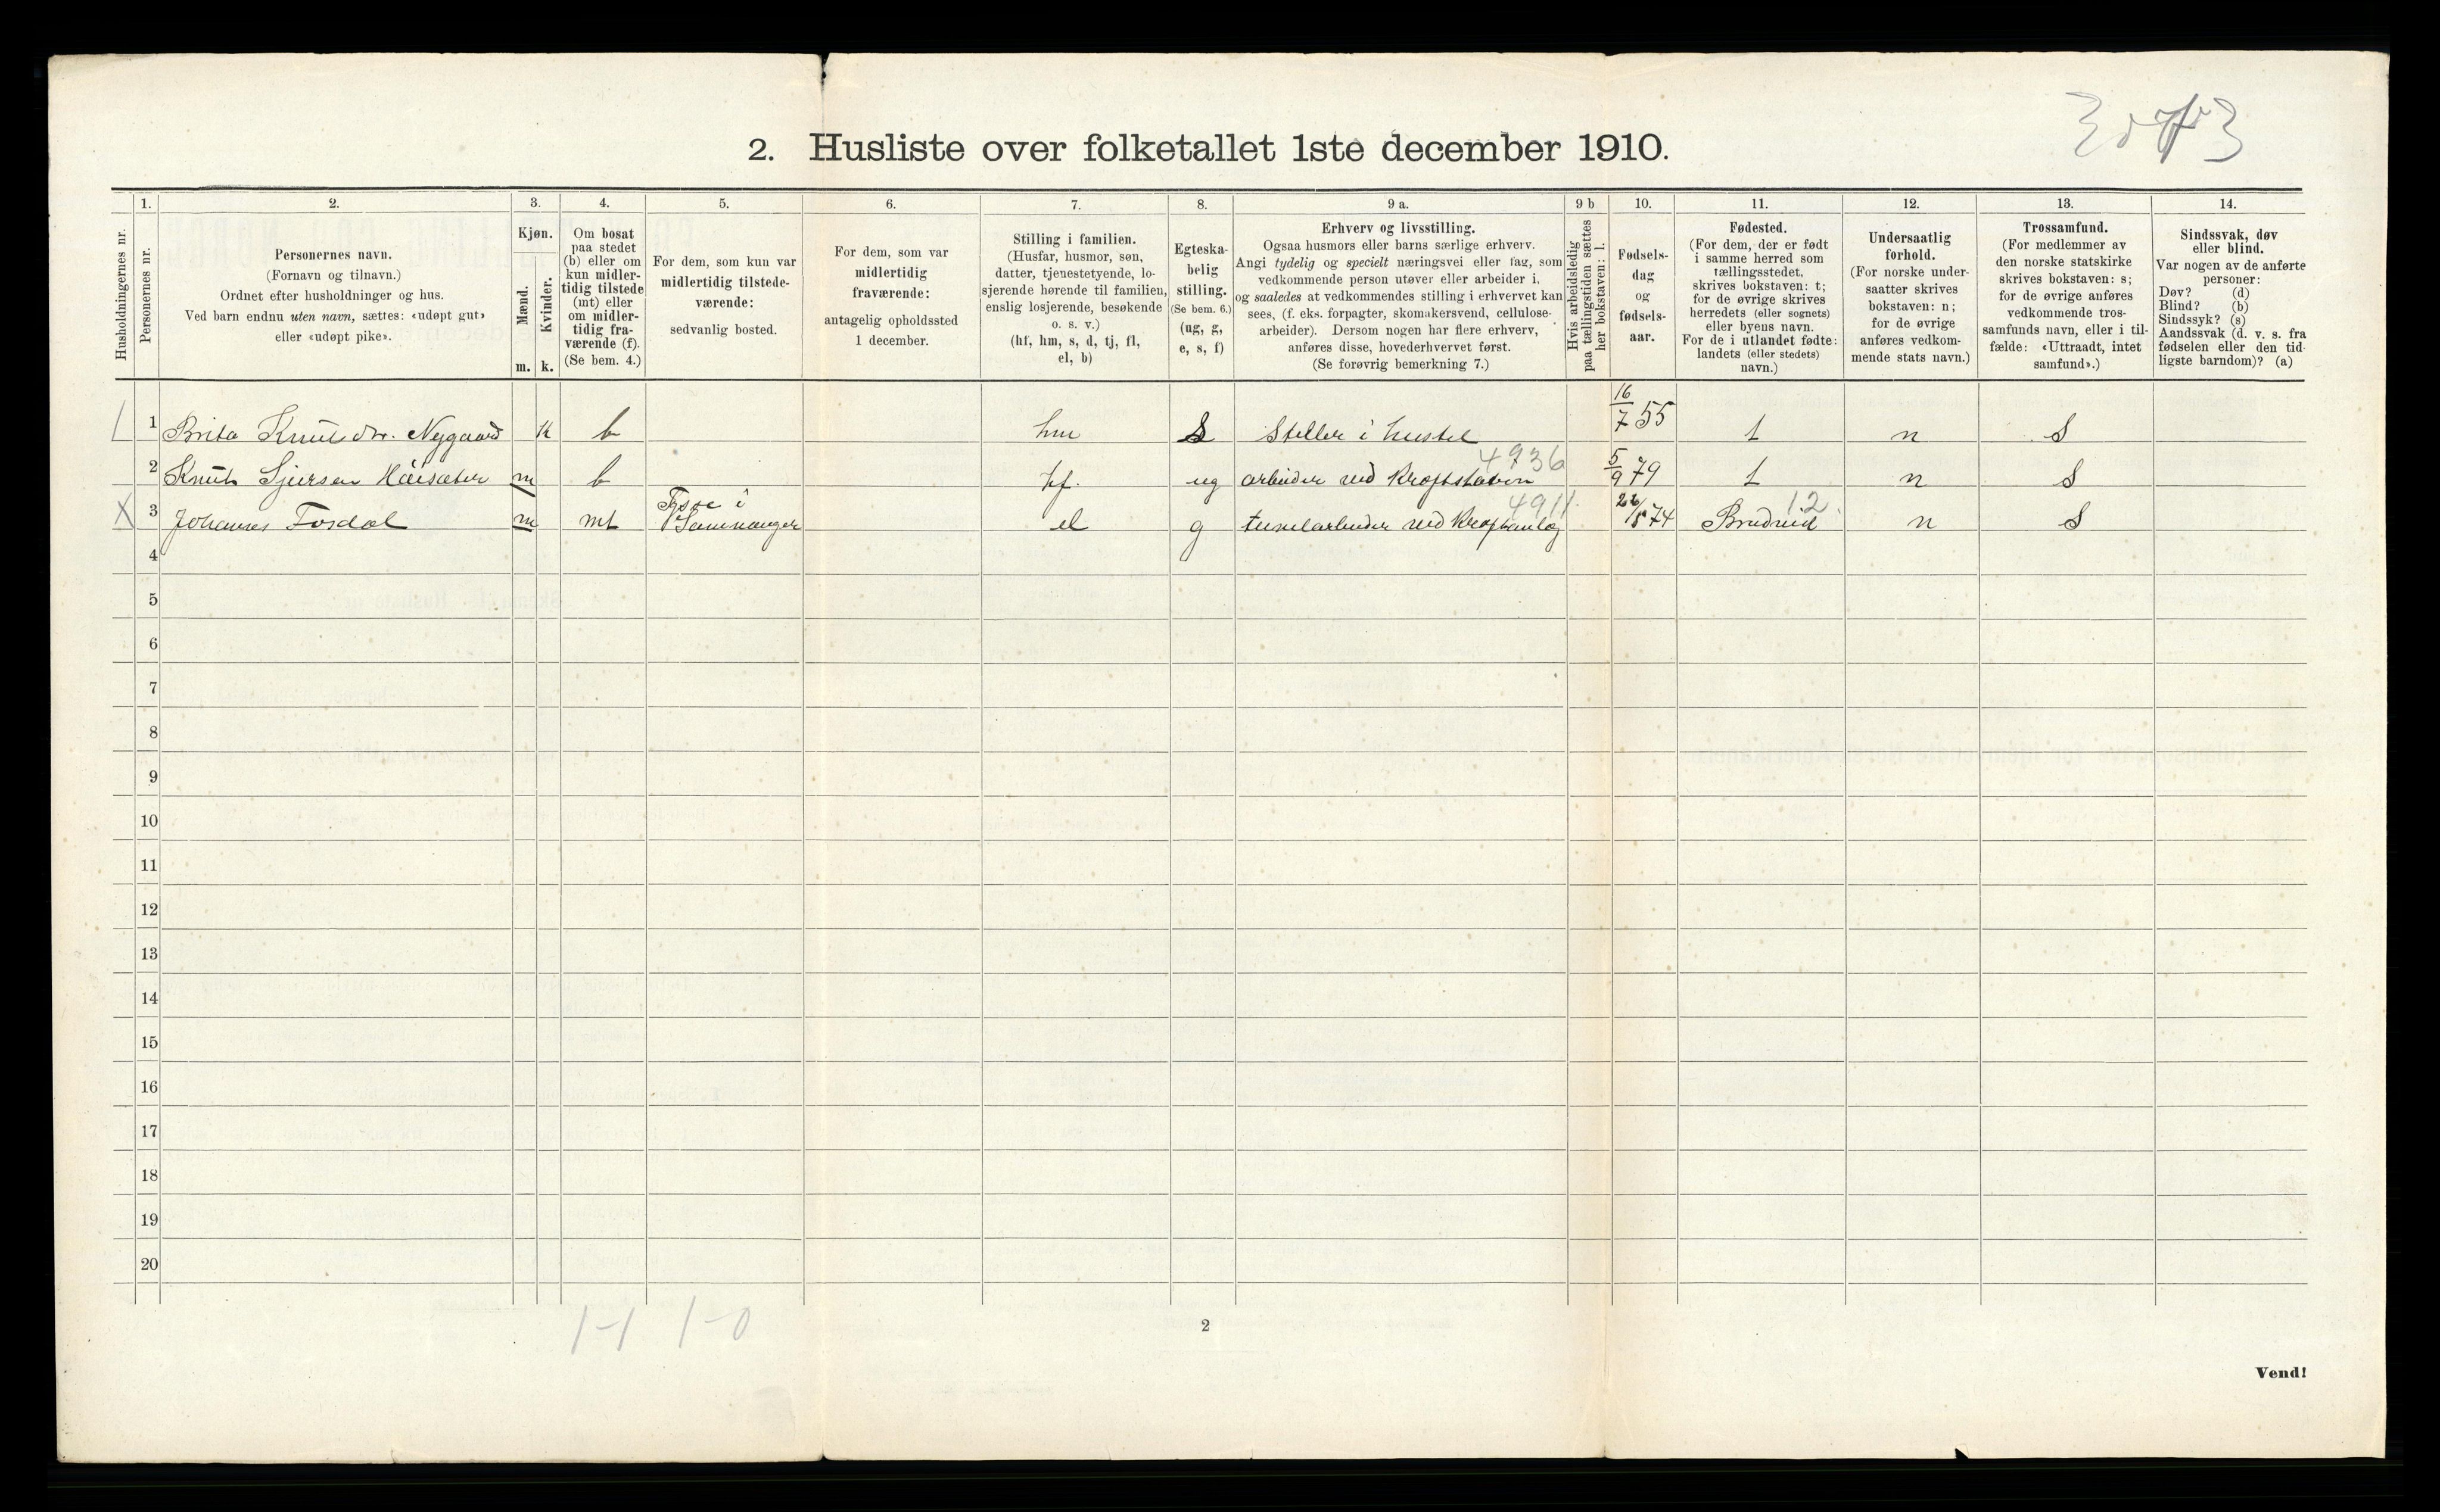 2. Husliste over folketallet 1ste december 1910.
Husholdningernes nr.
1.
Personernes nr.
2.
Personernes navn.
(Fornavn og tilnavn.)
Ordnet efter husholdninger og hus.
Ved barn endnu uten navn, sættes: «udøpt gut»
eller «udøpt pike».
3.
Kjøn.
Mænd.
Kvinder.
m. k.
4.
Om bosat
paa stedet
(b) eller om
kun midler-
tidig tilstede
(mt) eller
om midler-
tidig fra-
værende (f).
(Se bem. 4.)
5.
For dem, som kun var
midlertidig tilstede-
værende:
sedvanlig bosted.
6.
For dem, som var
midlertidig
fraværende:
antagelig opholdssted
1 december.
7.
Stilling i familien.
(Husfar, husmor, søn,
datter, tjenestetyende, lo-
sjerende hørende til familien,
enslig losjerende, besøkende
o. s. v.)
(hf, hm, s, d, tj, fl,
el, b)
8.
Egteska-
belig
stilling.
(Se bem. 6.)
(ug, g,
e, s, f)
9 a.
Erhverv og livsstilling.
Ogsaa husmors eller barns særlige erhverv.
Angi tydelig og specielt næringsvei eller fag, som
vedkommende person utøver eller arbeider i,
og saaledes at vedkommendes stilling i erhvervet kan
sees, (f. eks. forpagter, skomakersvend, cellulose-
arbeider). Dersom nogen har flere erhverv,
anføres disse, hovederhvervet først.
(Se forøvrig bemerkning 7.)
9 b
Hvis arbeidsledig
paa tællingstiden sættes
her bokstaven: l.
10.
Fødsels-
dag
og
fødsels-
aar.
11.
Fødested.
(For dem, der er født
i samme herred som
tællingsstedet,
skrives bokstaven: t;
for de øvrige skrives
herredets (eller sognets)
eller byens navn.
For de i utlandet fødte:
landets (eller stedets)
navn.)
12.
Undersaatlig
forhold.
(For norske under-
saatter skrives
bokstaven: n;
for de øvrige
anføres vedkom-
mende stats navn.)
13.
Trossamfund.
(For medlemmer av
den norske statskirke
skrives bokstaven: s;
for de øvrige anføres
vedkommende tros-
samfunds navn, eller i til-
fælde: «Uttraadt, intet
samfund».)
14.
Sindssvak, døv
eller blind.
Var nogen av de anførte
personer:
Døv? (d)
Blind? (b)
Sindssyk? (s)
Aandssvak (d. v. s. fra
fødselen eller den tid-
ligste barndom)? (a)
1 Brita Knutsdtr. Nygaard k b hm S Steller i huset 16/7 55 t n S
4936
2 Knut Sjursen m b hf. ug arbeider ved Kraftstation 5/9 79 t n S
4911 12
X 3 Johannes Fosdal m mt Tysse i Samnanger el g tunelarbeider ved Kraftanlæg 74 Bruvik n S
4
5
6
7
8
9
10
11
12
13
14
15
16
17
18
19
20
1-1 1-0
2
Vend!